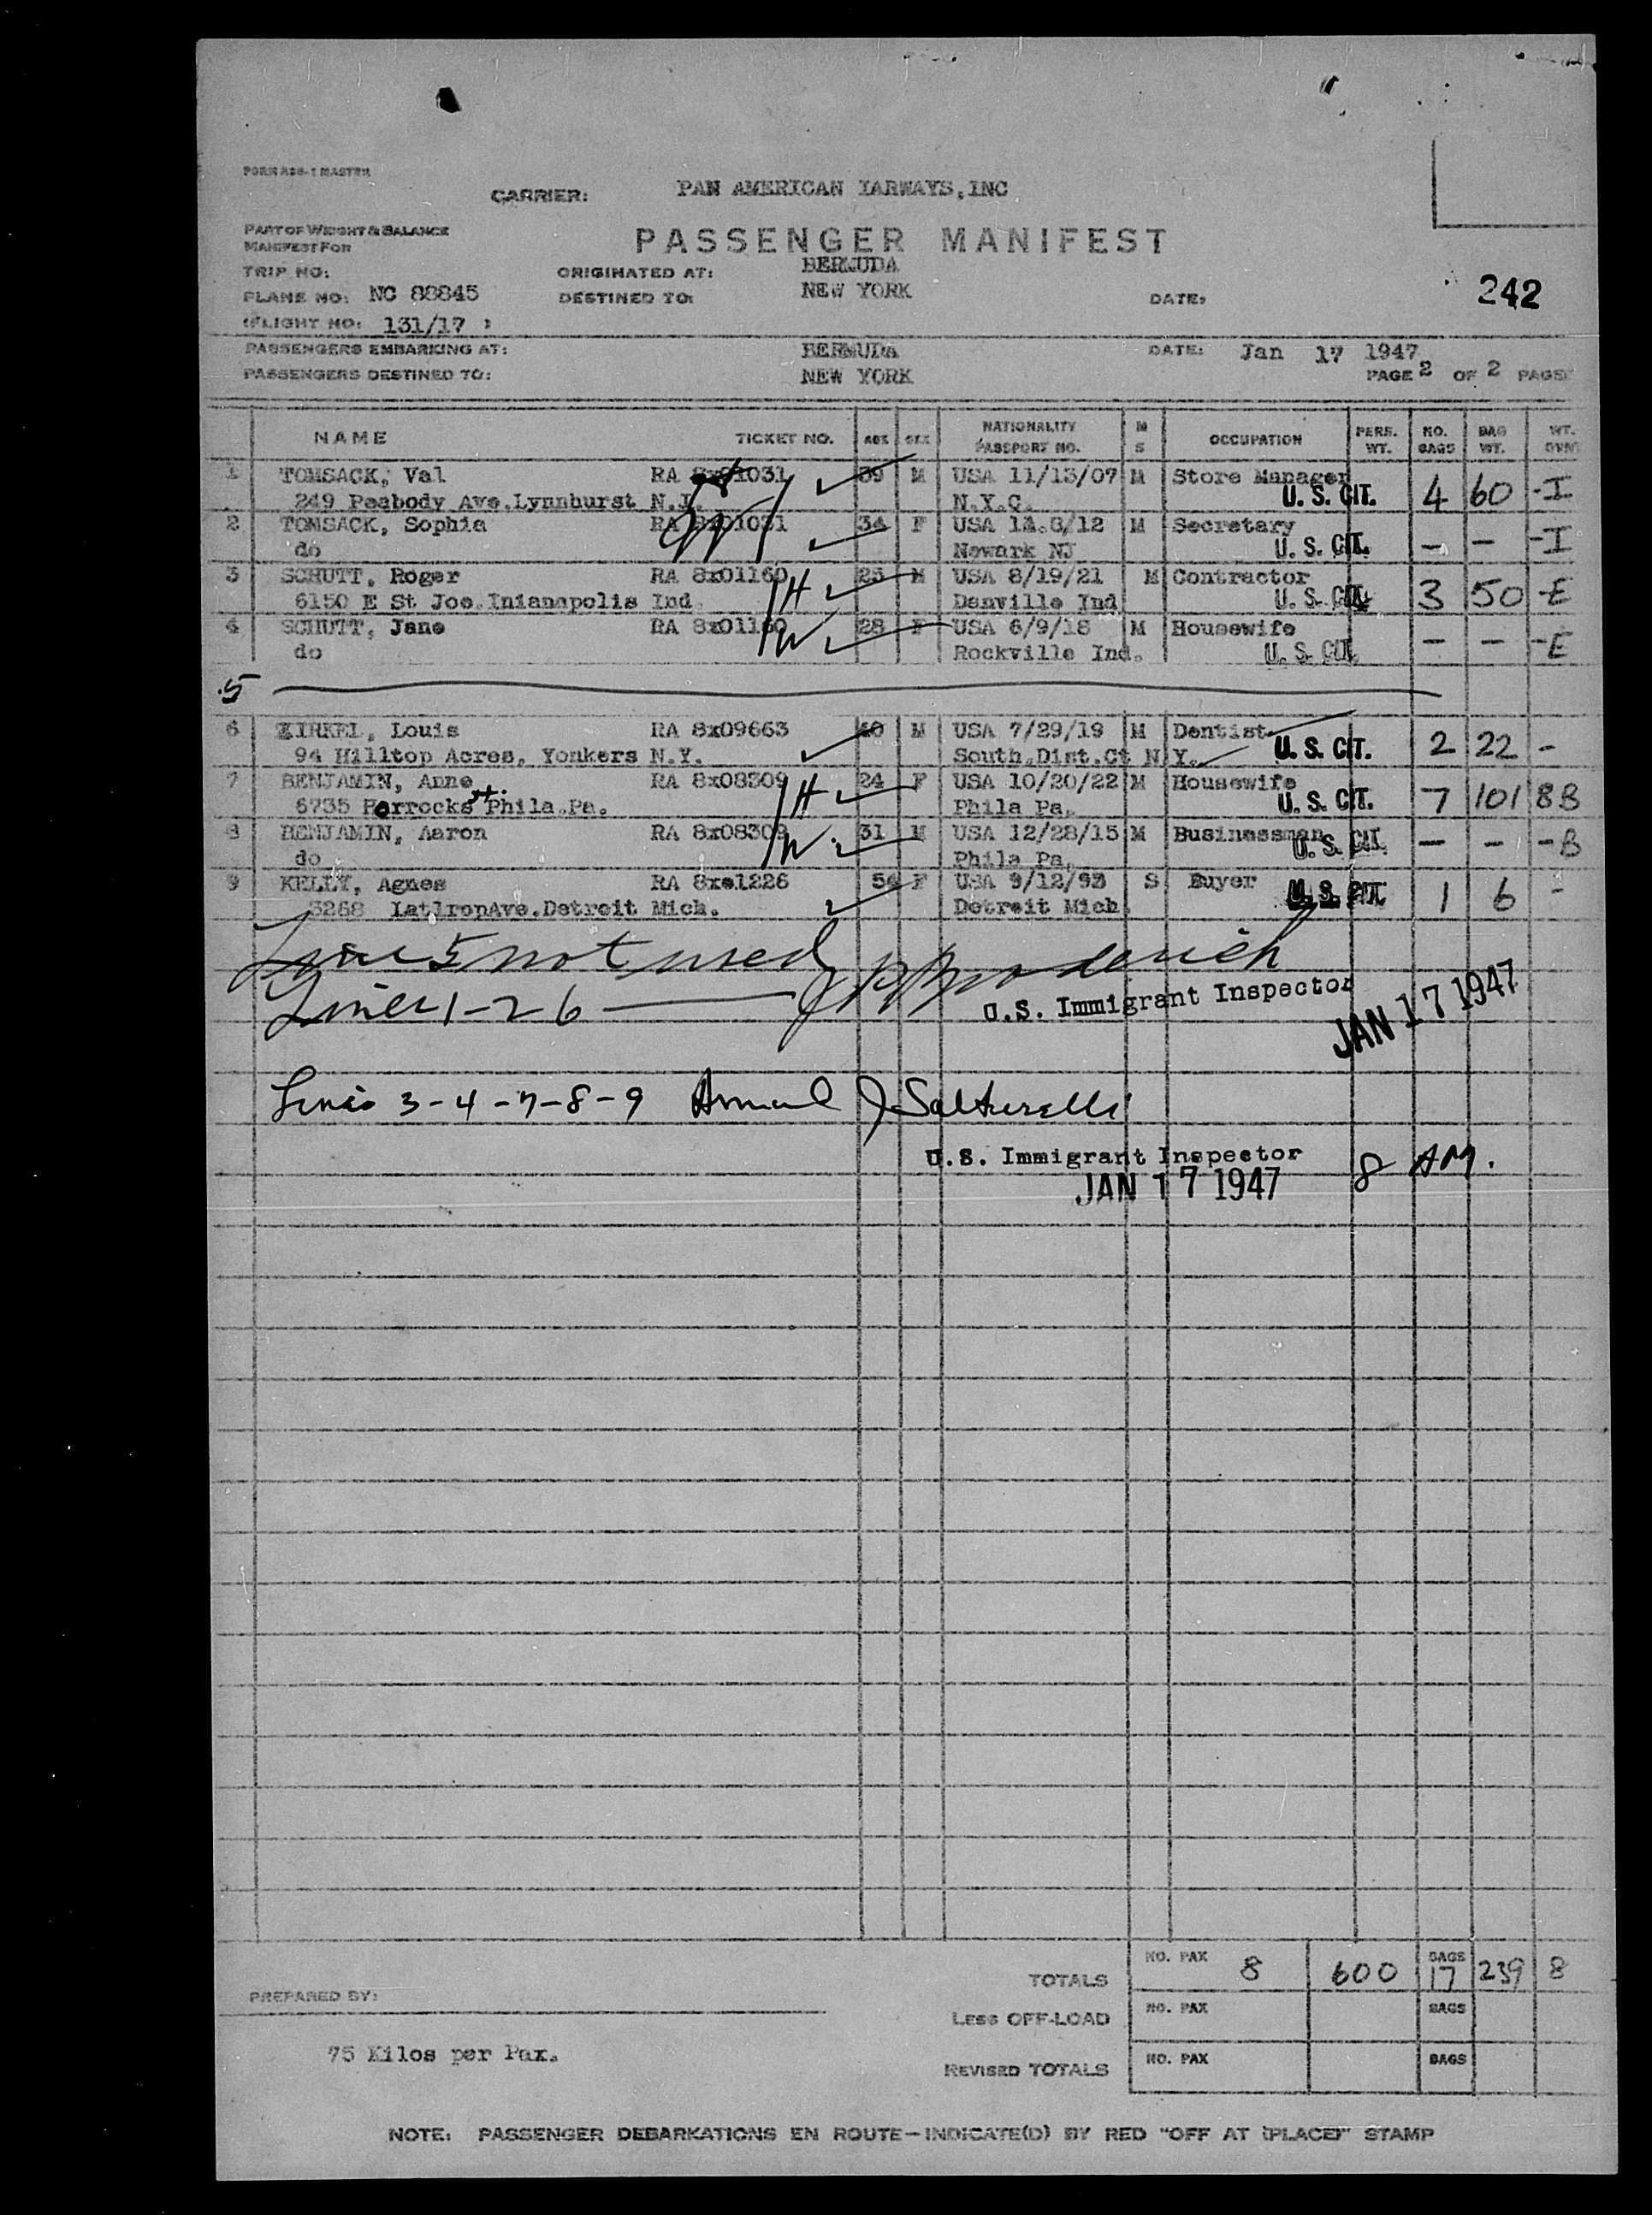 FORM ASG-1 MASTER
CARRIER: PAN AMERICAN IARWAYS,INC
PART OF WEIGHT & BALANCE
MANIFEST FOR
PASSENGER MANIFEST
TRIP NO: ORIGINATED AT: BERMUDA
PLANE NO: NC 88845 DESTINED TO: NEW YORK DATE: 242
(FLIGHT NO: 131/17 )
PASSENGERS EMBARKING AT: BERMUDA DATE: Jan 17 1947
PASSENGERS DESTINED TO: NEW YORK PAGE 2 OF 2 PAGES
NAME TICKET NO. AGE SEX NATIONALITY PASSPORT NO. M S OCCUPATION PERS. WT. NO. BAGS BAG WT. WT.
1 TOMSACK, Val RA 39 M USA 11/13/07 M Store Manager
249 Peabody Ave.Lynnhurst N.J. N.Y.C. U.S. CIT. 4 60 -I
2 TOMSACK, Sophia RA 34 F USA M Secretary
do Newark NJ U.S. CIT. - - -I
3 SCHUTT, Roger RA 8x01160 H 25 M USA 8/19/21 M Contractor
6150 E St Joe.Inianapolis Ind Danville Ind U.S. CIT. 3 50 -E
4 SCHUTT, Jane RA 8x01160 W 28 F USA 6/9/18 M Housewife
do Rockville Ind. U.S. CIT. - - -E
5
6 ZIRKEL, Louis RA 8x09663 40 M USA 7/29/19 M Dentist
94 Hilltop Acres, Yonkers N.Y. South.Dist.Ct N.Y. U.S. CIT. 2 22 -
7 BENJAMIN, Anne RA 8x08309 H 24 F USA 10/20/22 M Housewife
6735 Horrocks St. Phila.Pa. Phila Pa. U.S. CIT. 7 101 8B
8 BENJAMIN, Aaron RA 8x08309 W 31 M USA 12/28/15 M Businessman
do Phila Pa. U.S. CIT. - - -B
9 KELLY, Agnes RA 54 F USA 9/12/93 S Buyer
3268 Ave.Detroit Mich. Detroit Mich. U.S. CIT. 1 6 -
Line 5 not used
Lines 1-2 6
U.S. Immigrant Inspector
JAN 17 1947
Lines 3-4-7-8-9 J Salturelli
U.S. Immigrant Inspector 8 AM.
JAN 17 1947
TOTALS NO. PAX 8 600 BAGS 17 239 8
PREPARED BY:
LESS OFF-LOAD NO. PAX BAGS
75 Kilos per Pax.
REVISED TOTALS NO. PAX BAGS
NOTE: PASSENGER DEBARKATIONS EN ROUTE—INDICATE(D) BY RED "OFF AT (PLACE)" STAMP